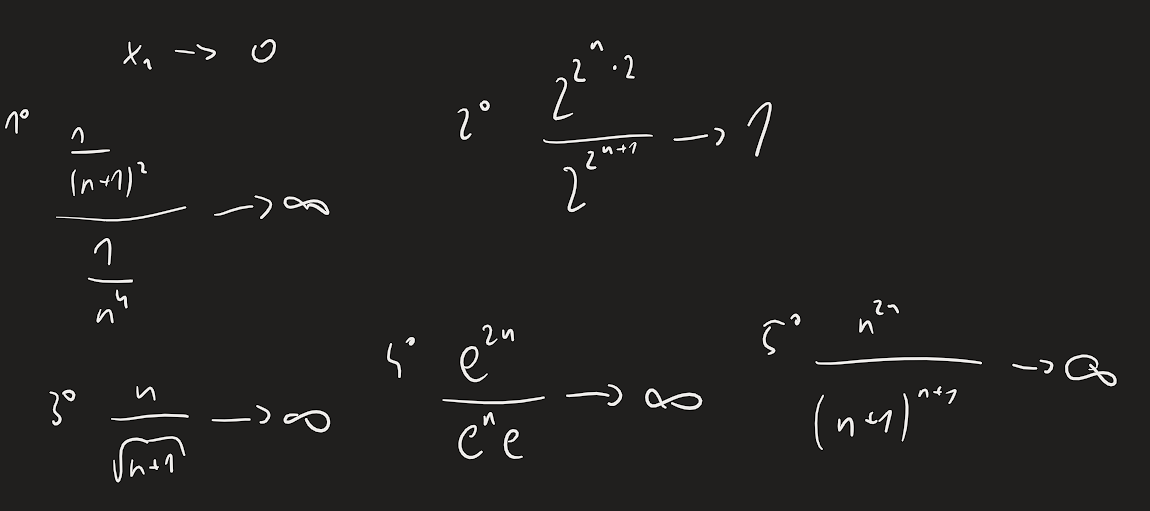 x₁ → 0
1° (1/(n+1)²)/(1/n⁴) → ∞
2° 2^(2^n · 2)/2^(2^(n+1)) → 1
3° n/√(n+1) → ∞
4° e^(2n)/(e^n e) → ∞
5° n^(2n)/(n+1)^(n+1) → ∞